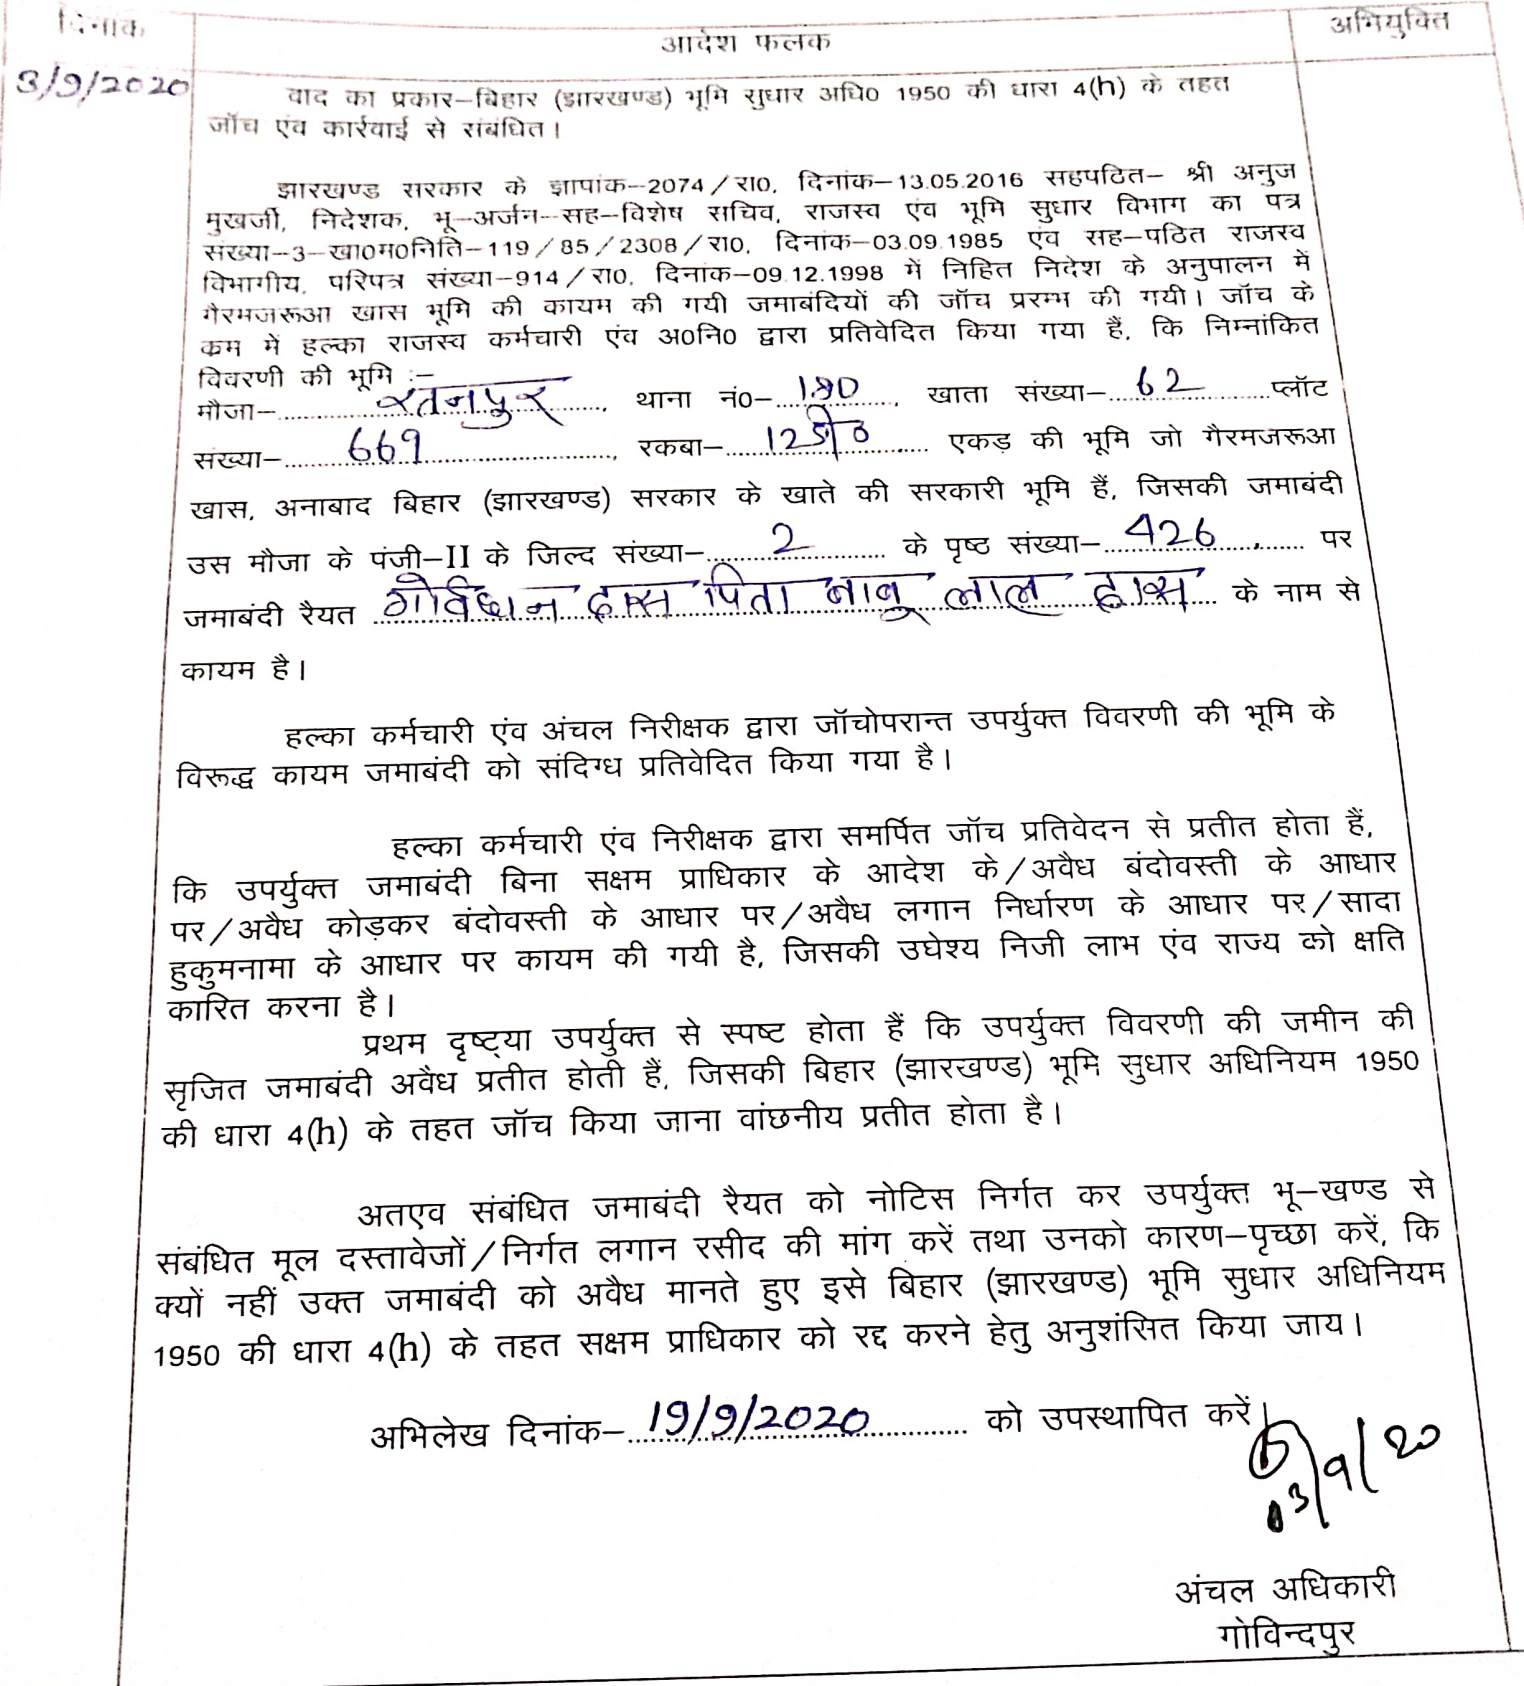 दिनांक
आदेश फलक
अभियुक्ति
3/9/2020
वाद का प्रकार–बिहार (झारखण्ड) भूमि सुधार अधि0 1950 की धारा 4(h) के तहत
जॉच एंव कार्रवाई से संबंधित।
झारखण्ड सरकार के ज्ञापांक–2074/रा0, दिनांक–13.05.2016 सहपठित– श्री अनुज
मुखर्जी, निदेशक, भू–अर्जन–सह–विशेष सचिव, राजस्व एंव भूमि सुधार विभाग का पत्र
संख्या–3–खा0म0निति–119/85/2308/रा0, दिनांक–03.09.1985 एंव सह–पठित राजस्व
विभागीय, परिपत्र संख्या–914/रा0, दिनांक–09.12.1998 में निहित निदेश के अनुपालन में
गैरमजरूआ खास भूमि की कायम की गयी जमाबंदियों की जॉच प्ररम्भ की गयी। जॉच के
क्रम में हल्का राजस्व कर्मचारी एंव अ0नि0 द्वारा प्रतिवेदित किया गया हैं, कि निम्नांकित
विवरणी की भूमि :–
मौजा– रतनपुर, थाना नं0– , खाता संख्या– 62 प्लॉट
संख्या– 669, रकबा– एकड़ की भूमि जो गैरमजरूआ
खास, अनाबाद बिहार (झारखण्ड) सरकार के खाते की सरकारी भूमि हैं, जिसकी जमाबंदी
उस मौजा के पंजी–II के जिल्द संख्या– 2 के पृष्ठ संख्या– 426 पर
जमाबंदी रैयत गोर्वधान दास पिता बाबु लाल दास के नाम से
कायम है।
हल्का कर्मचारी एंव अंचल निरीक्षक द्वारा जॉचोपरान्त उपर्युक्त विवरणी की भूमि के
विरूद्ध कायम जमाबंदी को संदिग्ध प्रतिवेदित किया गया है।
हल्का कर्मचारी एंव निरीक्षक द्वारा समर्पित जॉच प्रतिवेदन से प्रतीत होता हैं,
कि उपर्युक्त जमाबंदी बिना सक्षम प्राधिकार के आदेश के/अवैध बंदोवस्ती के आधार
पर/अवैध कोड़कर बंदोवस्ती के आधार पर/अवैध लगान निर्धारण के आधार पर/सादा
हुकुमनामा के आधार पर कायम की गयी है, जिसकी उघेश्य निजी लाभ एंव राज्य को क्षति
कारित करना है।
प्रथम दृष्ट्या उपर्युक्त से स्पष्ट होता हैं कि उपर्युक्त विवरणी की जमीन की
सृजित जमाबंदी अवैध प्रतीत होती हैं, जिसकी बिहार (झारखण्ड) भूमि सुधार अधिनियम 1950
की धारा 4(h) के तहत जॉच किया जाना वांछनीय प्रतीत होता है।
अतएव संबंधित जमाबंदी रैयत को नोटिस निर्गत कर उपर्युक्त भू–खण्ड से
संबंधित मूल दस्तावेजों/निर्गत लगान रसीद की मांग करें तथा उनको कारण–पृच्छा करें, कि
क्यों नहीं उक्त जमाबंदी को अवैध मानते हुए इसे बिहार (झारखण्ड) भूमि सुधार अधिनियम
1950 की धारा 4(h) के तहत सक्षम प्राधिकार को रद्द करने हेतु अनुशंसित किया जाय।
अभिलेख दिनांक– 19/9/2020 को उपस्थापित करें।
03/9/20
अंचल अधिकारी
गोविन्दपुर